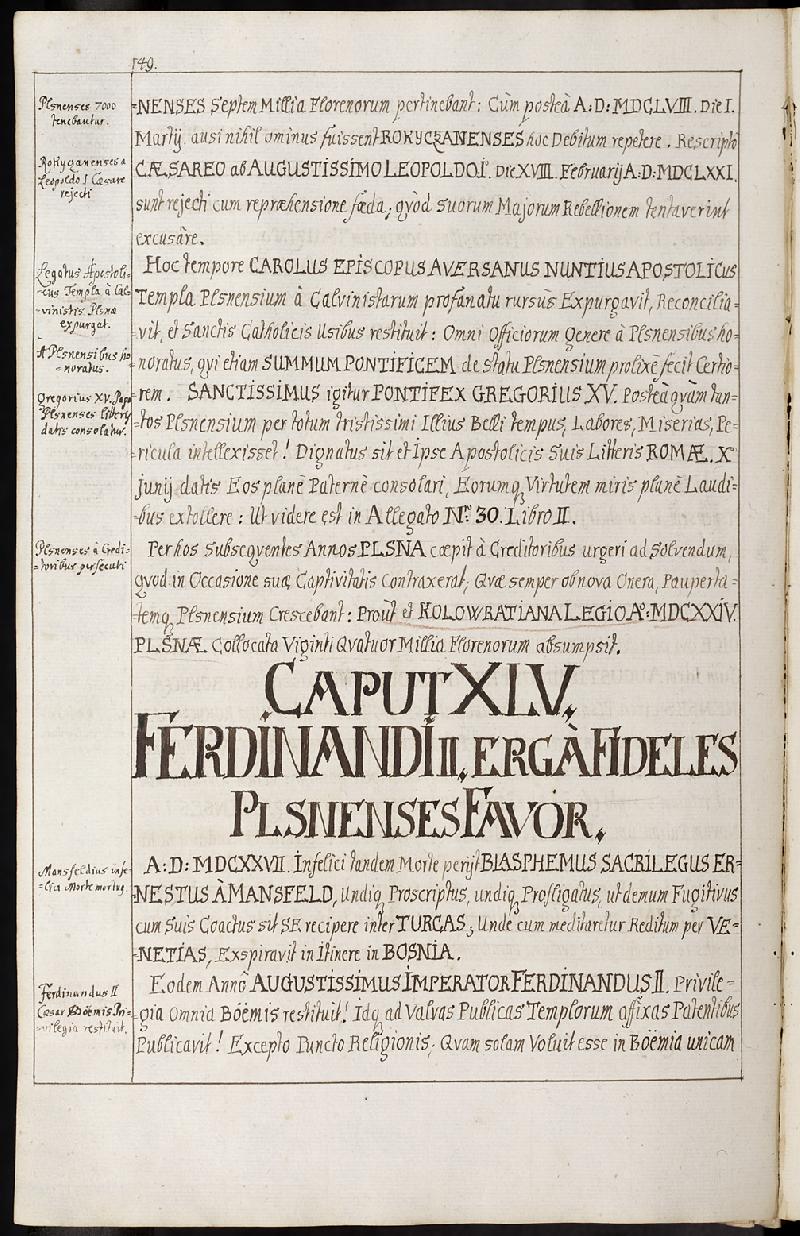 149.
Plsnenses 7000
tenebantur.
-NENSES Septem Millia Florenorum pertinebant: Cùm posteà A:D: MDCLVIII. Die I.
Martij ausi nihil ominus fuissent ROKYCZANENSES hoc Debitum repetere. Rescripto
Rokyczanenses a
Leopoldo I Cæsare
rejecti
CÆSAREO ab AUGUSTISSIMO LEOPOLDO I. Die XVIII. Februarij A:D: MDCLXXI.
sunt rejecti cum repræhensione fœda; qvòd suorum Majorum Rebellionem tentaverint
excusare.
Legatus Apostoli=
=cus Templa à Cal=
=vinistis Plsnæ
expurgat.
Hoc tempore CAROLUS EPISCOPUS AVERSANUS NUNTIUS APOSTOLICUS
Templa Plsnensium à Calvinistarum profanatu rursùs Expurgavit, Reconcilia=
=vit, et Sanctis Catholicis Usibus restituit: Omni Officiorum Genere à Plsnensibus ho=
A Plsnensibus ho=
=noratus.
=noratus, qvi etiam SUMMUM PONTIFICEM de statu Plsnensium prolixè fecit Certio=
Gregorius XV. Papa
Plsnenses literis
datis consolatur.
=rem. SANCTISSIMUS igitur PONTIFEX GREGORIUS XV. Posteàqvàm tan=
=tos Plsnensium per totum tristissimi Illius Belli tempus, Labores, Miserias, Pe=
=ricula intellexisset! Dignatus sit et Ipse Apostolicis Suis Litteris ROMÆ. X
Junij datis Eos planè Paternè consolari, Eorumq Virtutem miris planè Laudi=
=bus extollere: Ut videre est in Allegato Nr. 30. Libro II.
Plsnenses à Credi=
=toribus persecuti
Per hos Subseqventes Annos PLSNA cœpit à Creditoribus urgeri ad Solvendum,
qvod in Occasione suæ Captivitatis Contraxerat; Qvæ semper ob nova Onera, Pauperta=
=temq Plsnensium Crescebant: Proùt et KOLOWRATIANA LEGIO Aº: MDCXXIV.
PLSNÆ Collocata Viginti Qvatuor Millia Florenorum absumpsit.
CAPUT XLV.
FERDINANDI II. ERGÀ FIDELES
PLSNENSES FAVOR.
Mansfeldius infe=
=lici Morte moritur
A:D: MDCXXVII. Infelici tandem Morte perijt BLASPHEMUS SACRILEGUS ER=
=NESTUS À MANSFELD, undiq Proscriptus, undiq Profligatus, ut demum Fugitivus
cum Suis Coactus sit SE recipere inter TURCAS; Unde cum meditaretur Reditum per VE=
=NETIAS, Exspiravit in Itinere in BOSNIA.
Ferdinandus II
Cæsar Böemis Pri=
=vilegia restituit.
Eodem Annô AUGUSTISSIMUS IMPERATOR FERDINANDUS II. Privile=
=gia Omnia Böëmis restituit! Idq ad Valvas Publicas Templorum affixas Patentibus
Publicavit! Excepto Puncto Religionis; Qvam solam Voluit esse in Boëmia unicam